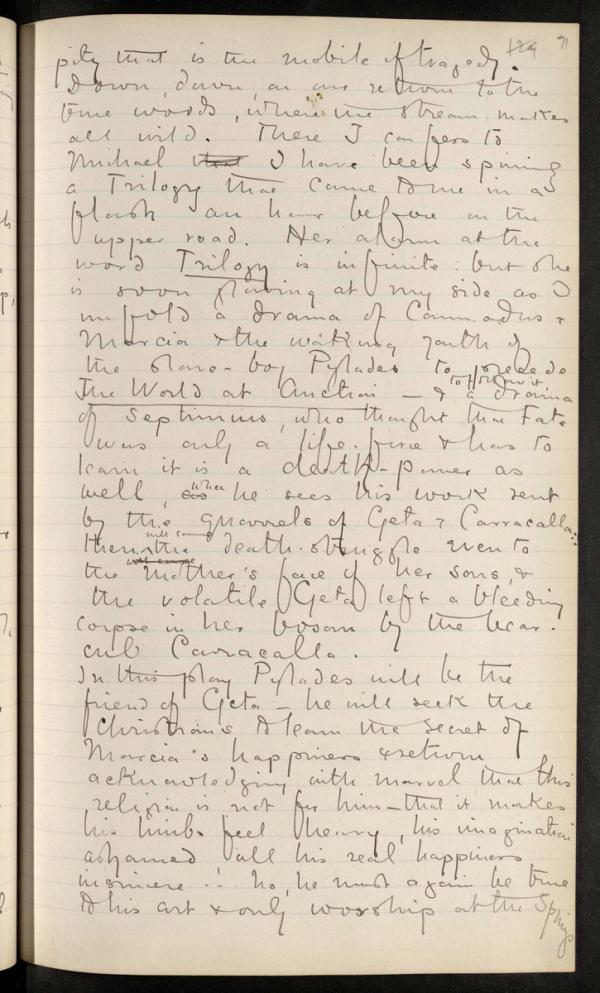 124 71
pity that is the mobile of tragedy.
Down, down, on our return to the
true woods, where the stream makes
all wild. There I confess to
Michael that I have been spinning
a Trilogy that came to me in a
flash an hour before on the
upper road. Her alarm at the
word Trilogy is infinite: but she
is soon glowing at my side as I
unfold a drama of Commodus &
Marcia & the waking youth of
the slave-boy Pylades to precede
The World at Auction – & to follow it a drama
of Septimius, who thought that Fate
was only a life-force & has to
learn it is a death-power as
well, as when he sees his work rent
by the quarrels of Geta & Carracalla:
then will come the death-struggle even to
the Mother's face of her sons, &
the volatile Geta left a bleeding
corpse in her bosom by the bear-
cub Carracalla.
In this play Pylades will be the
friend of Geta – he will seek the
Christians to learn the secret of
Marcia's happiness & return
acknowledging with marvel that this
religion is not for him – that it makes
his limbs feel heavy, his imagination
ashamed & all his real happiness
insincere .'. no, he must again be true
to his art & only worship at the Springs